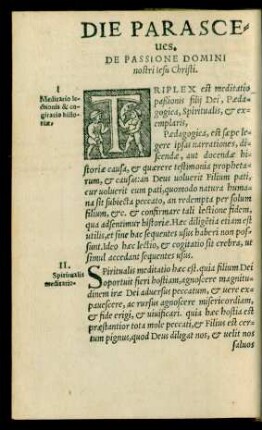 DIE PARASCE-
ues,
DE PASSIONE DOMINI
nostri iesu Christi.
I
Meditatio le-
ctionis & co-
gitatio histo-
riæ.
TRIPLEX est meditatio
passionis filij Dei, Pæda-
gogica, Spiritualis, & ex-
emplaris,
Pædagogica, est sæpe le-
gere ipsas narrationes, di-
scendæ, aut docendæ hi-
storiæ causa, & quærere testimonia propheta-
rum, & causas: an Deus uoluerit Filium pati,
cur uoluerit eum pati, quomodo natura huma-
na sit subiecta peccato, an redempta per solum
filium, &c. & confirmare tali lectione fidem,
qua adsentimur historiæ. Hæc diligētia etiam est
utilis, et sine hac sequentes usus haberi non pos-
sunt. Ideo hæc lectio, & cogitatio sit crebra, ut
simul accedant sequentes usus.
II.
Spiritualis
meditatio.
Spiritualis meditatio hæc est. quia filium Dei
oportuit fieri hostiam, agnoscere magnitu-
dinem iræ Dei aduersus peccatum, & uere ex-
pauescere, ac rursus agnoscere misericordiam,
& fide erigi, & uiuificari. quia hæc hostia est
præstantior tota mole peccati, & Filius est cer-
tum pignus, quod Deus diligat nos, & uelit nos
saluos